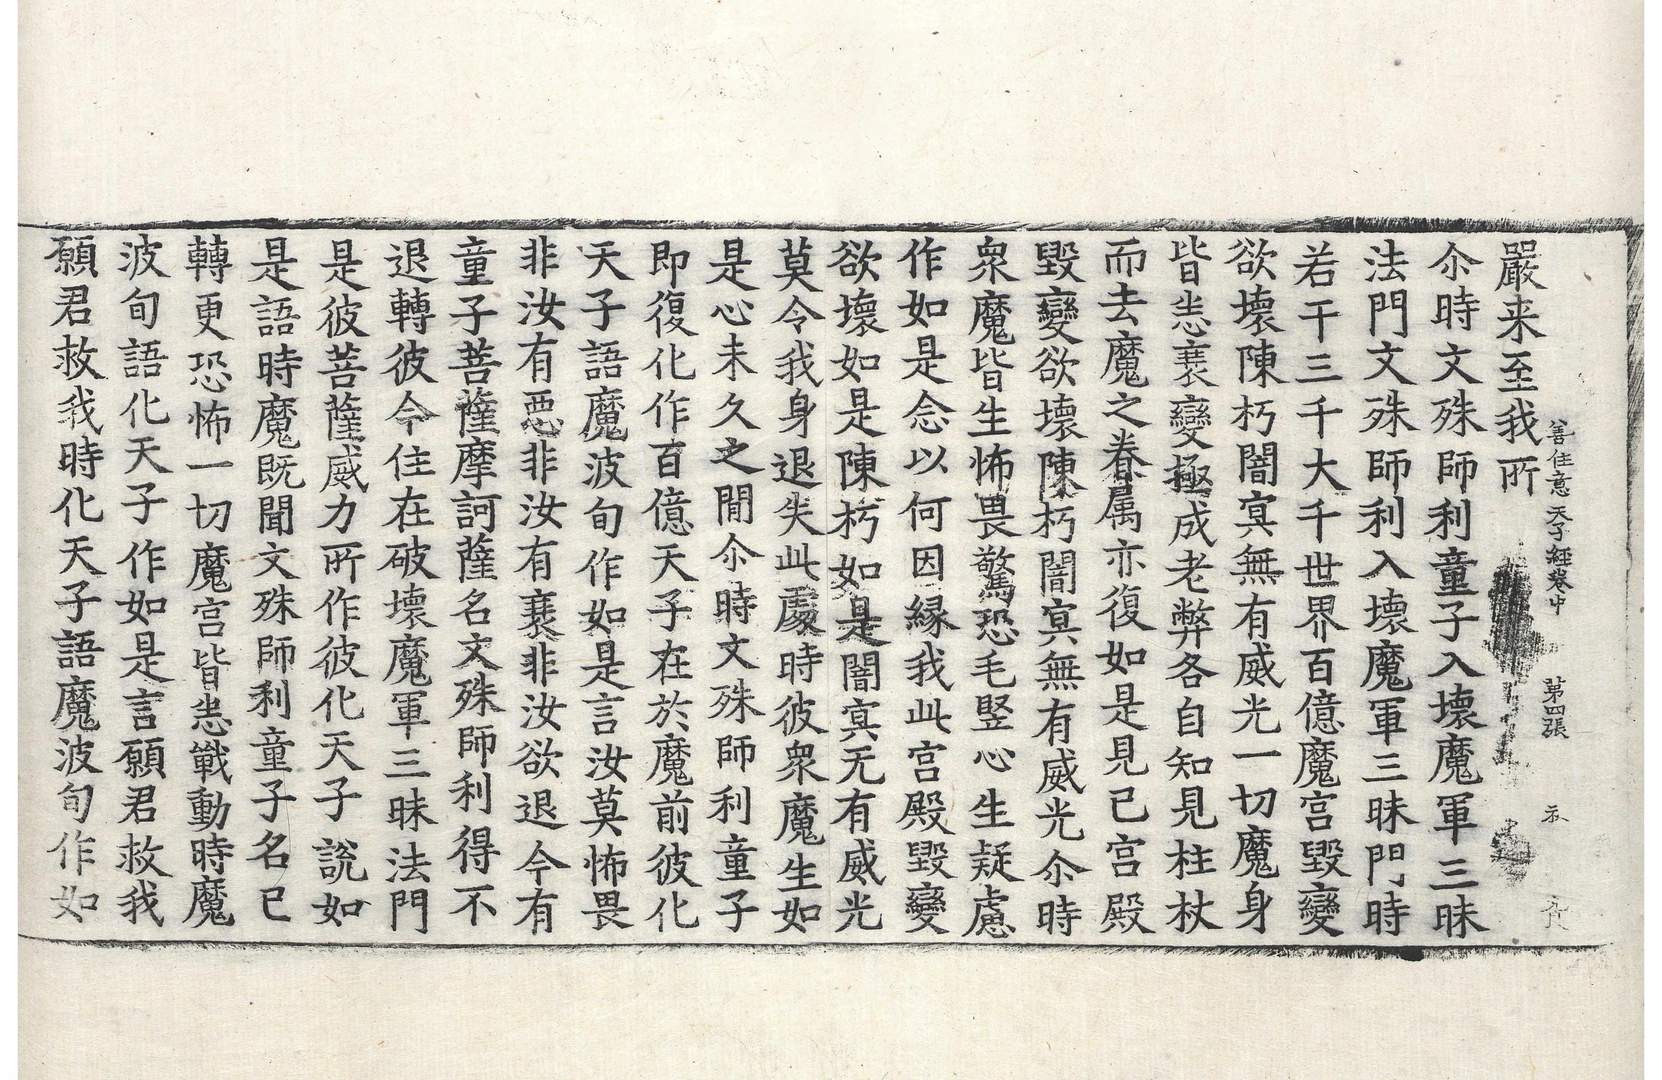 善住意天子經卷中　第四張　衣
嚴来至我所
尒時文殊師利童子入壞魔軍三昧
法門文殊師利入壞魔軍三昧門時
若干三千大千世界百億魔宫毀變
欲壞陳朽闇㝠無有威光一切魔身
皆悉衰變極成老弊各自知見柱杖
而去魔之眷属亦復如是見已宫殿
毀變欲壞陳朽闇㝠無有威光尒時
衆魔皆生怖畏驚恐毛竪心生疑慮
作如是念以何因縁我此宫殿毀變
欲壞如是陳朽如是闇㝠无有威光
莫令我身退失此處時彼衆魔生如
是心未久之閒尒時文殊師利童子
即復化作百億天子在於魔前彼化
天子語魔波旬作如是言汝莫怖畏
非汝有惡非汝有衰非汝欲退今有
童子菩薩摩訶薩名文殊師利得不
退轉彼今住在破壞魔軍三昧法門
是彼菩薩威力所作彼化天子說如
是語時魔既聞文殊師利童子名已
轉更恐怖一切魔宫皆悉戰動時魔
波旬語化天子作如是言願君救我
願君救我時化天子語魔波旬作如